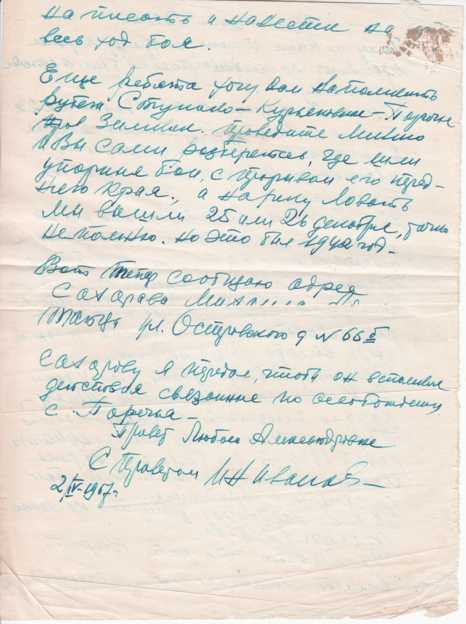 написать и навести на
весь ход боя.
Еще ребята хочу вам напомнить
рубеж Ступнако- Курьянкино-
Зимник. Проведите линию
и Вы сами разберетесь, где шли
упорные бои, с прорывом его перед-
него края., а на реку Ловать
мы вышли 25 или 26 декабря, точно
не помню. но это был 1942 год-
Вот теперь сообщаю адрес
Сахарова
ул. Островского д № 66
Сахарову я передал, чтобы он вспомнил
действия связанные по освобождению
с Поречья-
Привет Любови Александровне
С Приветом Иванов
2/IV-1967г